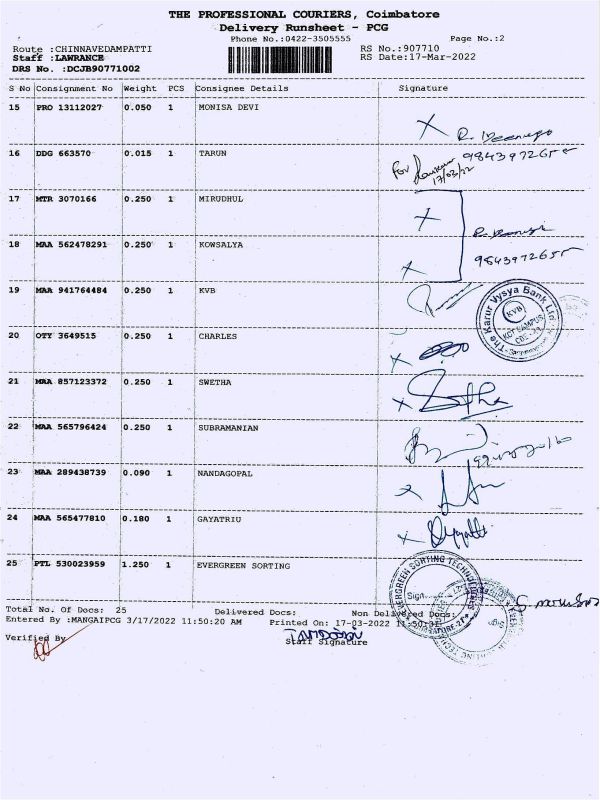 THE PROFESSIONAL COURIERS, Coimbatore
Delivery Runsheet - PCG
Phone No.:0422-3505555 Page No.:2
Route :CHINNAVEDAMPATTI RS No.:907710
Staff :LAWRANCE RS Date:17-Mar-2022
DRS No. :DCJB90771002
S No Consignment No Weight PCS Consignee Details Signature
15 PRO 13112027 0.050 1 MONISA DEVI
16 DDG 663570 0.015 1 TARUN 9843972655
For
17/03/22
17 MTR 3070166 0.250 1 MIRUDHUL
18 MAA 562478291 0.250 1 KOWSALYA
9843972655
19 MAA 941764484 0.250 1 KVB
The Karur Vysya Bank Ltd.
KVB
KCT CAMPUS
20 OTY 3649515 0.250 1 CHARLES
21 MAA 857123372 0.250 1 SWETHA
Swetha
22 MAA 565796424 0.250 1 SUBRAMANIAN
23 MAA 289438739 0.090 1 NANDAGOPAL
24 MAA 565477810 0.180 1 GAYATRIU
Gayatri
25 PTL 530023959 1.250 1 EVERGREEN SORTING
EVERGREEN SORTING TECHNOLOGIES
Sign
Total No. Of Docs: 25 Delivered Docs: Non Delivered Docs:
Entered By :MANGAIPCG 3/17/2022 11:50:20 AM Printed On: 17-03-2022 11:50:31
Verified By Staff Signature